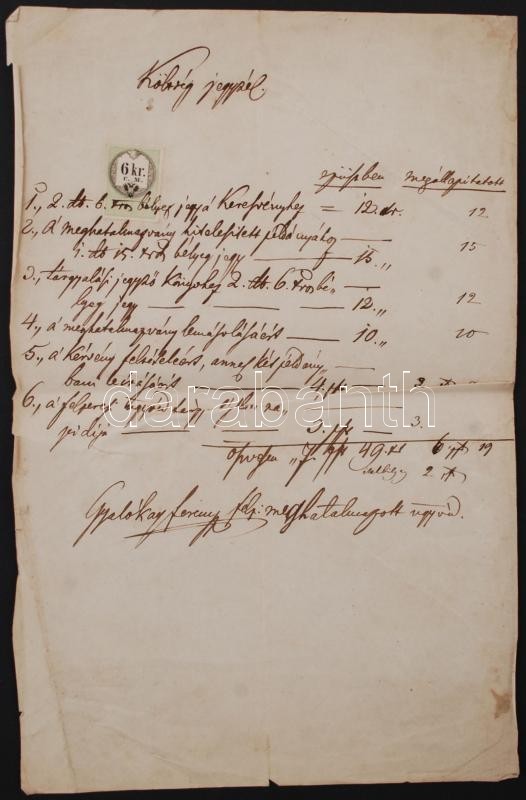 Költség jegyzék.
6 kr.
C. M.
ezüstben megállapitatott
1., 2. db. 6. kros bélyeg jegy á Keresvényhez = 12 kr. 12
2., Á meghatalmazvány hitelesitett példányához
1. db 15. kros bélyeg jegy 15. „ 15
3., tárgyalási jegyző könyvhez 2. db. 6. kros bé„
lyeg jegy 12. „ 12
4., á meghatalmazvány lemásolásáért 10. „ 10
5., á kérvény felvételeért, annak két példány
bani leirásáért 4. 3.
6., á felperesi ügyvéd napi
pidija 3. 3.
öszvesen „7 49. kr 6 19
2
Gyalókay Ferencz felp: meghatalmazott ügyvéd.
darabanth